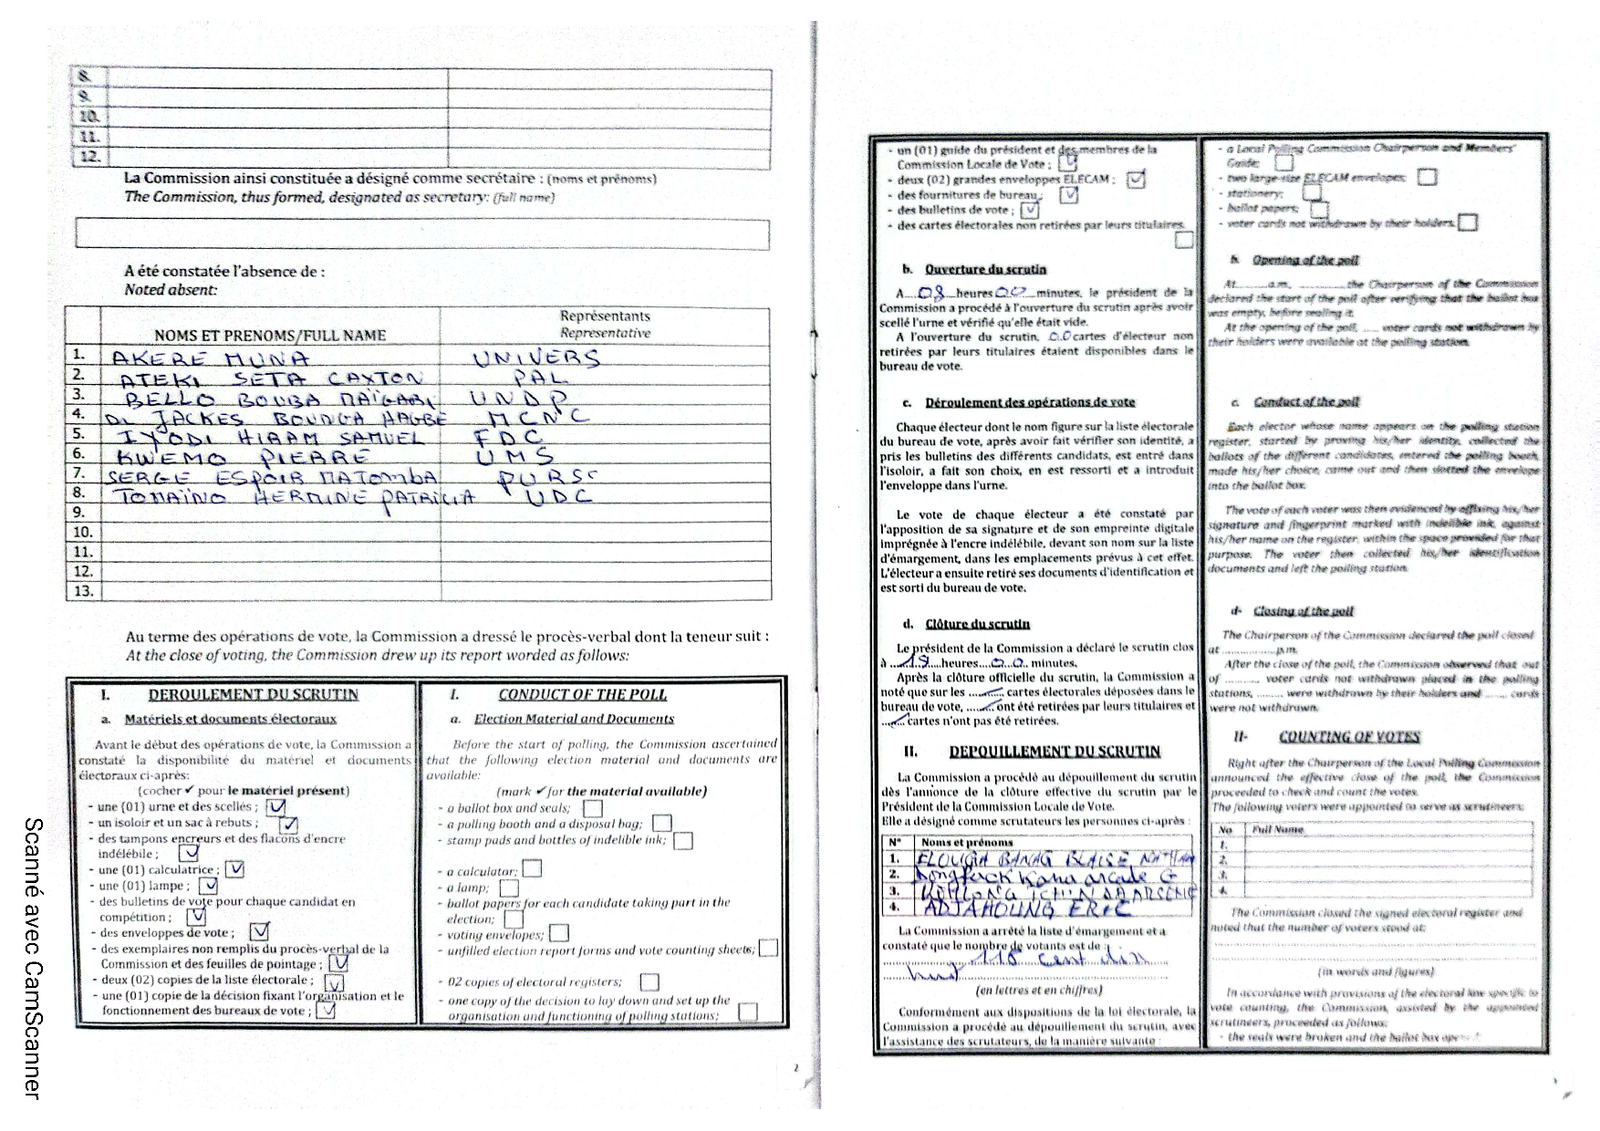 8.
9.
10.
11.
12.
La Commission ainsi constituée a désigné comme secrétaire : (noms et prénoms)
The Commission, thus formed, designated as secretary: (full name)
A été constatée l'absence de :
Noted absent:
NOMS ET PRENOMS/FULL NAME
Représentants
Representative
1. AKERE MUNA UNIVERS
2. ATEKI SETA CAXTON PAL
3. BELLO BOUBA MAÏGARI UNDP
4. Dr JACKES BOUNGA HAGBE MCNC
5. IYODI HIRAM SAMUEL FDC
6. KWEMO PIERRE UMS
7. SERGE ESPOIR MATOMBA PURSC
8. TOMAÏNO HERMINE PATRICIA UDC
9.
10.
11.
12.
13.
Au terme des opérations de vote, la Commission a dressé le procès-verbal dont la teneur suit :
At the close of voting, the Commission drew up its report worded as follows:
I. DEROULEMENT DU SCRUTIN
a. Matériels et documents électoraux
Avant le début des opérations de vote, la Commission a
constaté la disponibilité du matériel et documents
électoraux ci-après:
(cocher ✓ pour le matériel présent)
- une (01) urne et des scellés ; ✓
- un isoloir et un sac à rebuts ; ✓
- des tampons encreurs et des flacons d'encre
indélébile ; ✓
- une (01) calculatrice ; ✓
- une (01) lampe ; ✓
- des bulletins de vote pour chaque candidat en
compétition ; ✓
- des enveloppes de vote ; ✓
- des exemplaires non remplis du procès-verbal de la
Commission et des feuilles de pointage ; ✓
- deux (02) copies de la liste électorale ; ✓
- une (01) copie de la décision fixant l'organisation et le
fonctionnement des bureaux de vote ; ✓
I. CONDUCT OF THE POLL
a. Election Material and Documents
Before the start of polling, the Commission ascertained
that the following election material and documents are
available:
(mark ✓ for the material available)
- a ballot box and seals;
- a polling booth and a disposal bag;
- stamp pads and bottles of indelible ink;
- a calculator;
- a lamp;
- ballot papers for each candidate taking part in the
election;
- voting envelopes;
- unfilled election report forms and vote counting sheets;
- 02 copies of electoral registers;
- one copy of the decision to lay down and set up the
organisation and functioning of polling stations;
2
- un (01) guide du président et des membres de la
Commission Locale de Vote ; ✓
- deux (02) grandes enveloppes ELECAM ; ✓
- des fournitures de bureau ; ✓
- des bulletins de vote ; ✓
- des cartes électorales non retirées par leurs titulaires.
b. Ouverture du scrutin
A....08....heures 00 ....minutes, le président de la
Commission a procédé à l'ouverture du scrutin après avoir
scellé l'urne et vérifié qu'elle était vide.
A l'ouverture du scrutin, 00 cartes d'électeur non
retirées par leurs titulaires étaient disponibles dans le
bureau de vote.
c. Déroulement des opérations de vote
Chaque électeur dont le nom figure sur la liste électorale
du bureau de vote, après avoir fait vérifier son identité, a
pris les bulletins des différents candidats, est entré dans
l'isoloir, a fait son choix, en est ressorti et a introduit
l'enveloppe dans l'urne.
Le vote de chaque électeur a été constaté par
l'apposition de sa signature et de son empreinte digitale
imprégnée à l'encre indélébile, devant son nom sur la liste
d'émargement, dans les emplacements prévus à cet effet.
L'électeur a ensuite retiré ses documents d'identification et
est sorti du bureau de vote.
d. Clôture du scrutin
Le président de la Commission a déclaré le scrutin clos
à ....heures....00.. minutes.
Après la clôture officielle du scrutin, la Commission a
noté que sur les ........ cartes électorales déposées dans le
bureau de vote, ........ ont été retirées par leurs titulaires et
........ cartes n'ont pas été retirées.
II. DEPOUILLEMENT DU SCRUTIN
La Commission a procédé au dépouillement du scrutin
dès l'annonce de la clôture effective du scrutin par le
Président de la Commission Locale de Vote.
Elle a désigné comme scrutateurs les personnes ci-après :
N° Noms et prénoms
1. BLAISE
2. Kana
3. ARSENE
4. ADJAHOUNG ERIC
La Commission a arrêté la liste d'émargement et a
constaté que le nombre de votants est de :
118 cent dix
huit
(en lettres et en chiffres)
Conformément aux dispositions de la loi électorale, la
Commission a procédé au dépouillement du scrutin, avec
l'assistance des scrutateurs, de la manière suivante :
- a Local Polling Commission Chairperson and Members'
Guide;
- two large-size ELECAM envelopes;
- stationery;
- ballot papers;
- voter cards not withdrawn by their holders.
b. Opening of the poll
At..........a.m, ..............the Chairperson of the Commission
declared the start of the poll after verifying that the ballot box
was empty, before sealing it.
At the opening of the poll, ..... voter cards not withdrawn by
their holders were available at the polling station.
c. Conduct of the poll
Each elector whose name appears on the polling station
register, started by proving his/her identity, collected the
ballots of the different candidates, entered the polling booth,
made his/her choice, came out and then slotted the envelope
into the ballot box.
The vote of each voter was then evidenced by affixing his/her
signature and fingerprint marked with indelible ink, against
his/her name on the register, within the space provided for that
purpose. The voter then collected his/her identification
documents and left the polling station.
d- Closing of the poll
The Chairperson of the Commission declared the poll closed
at .................p.m.
After the close of the poll, the Commission observed that out
of .......... voter cards not withdrawn placed in the polling
stations, ........ were withdrawn by their holders and ........ cards
were not withdrawn.
II- COUNTING OF VOTES
Right after the Chairperson of the Local Polling Commission
announced the effective close of the poll, the Commission
proceeded to check and count the votes.
The following voters were appointed to serve as scrutineers:
No Full Name
1.
2.
3.
4.
The Commission closed the signed electoral register and
noted that the number of voters stood at:
(in words and figures)
In accordance with provisions of the electoral law specific to
vote counting, the Commission, assisted by the appointed
scrutineers, proceeded as follows:
- the seals were broken and the ballot box opened
Scanné avec CamScanner